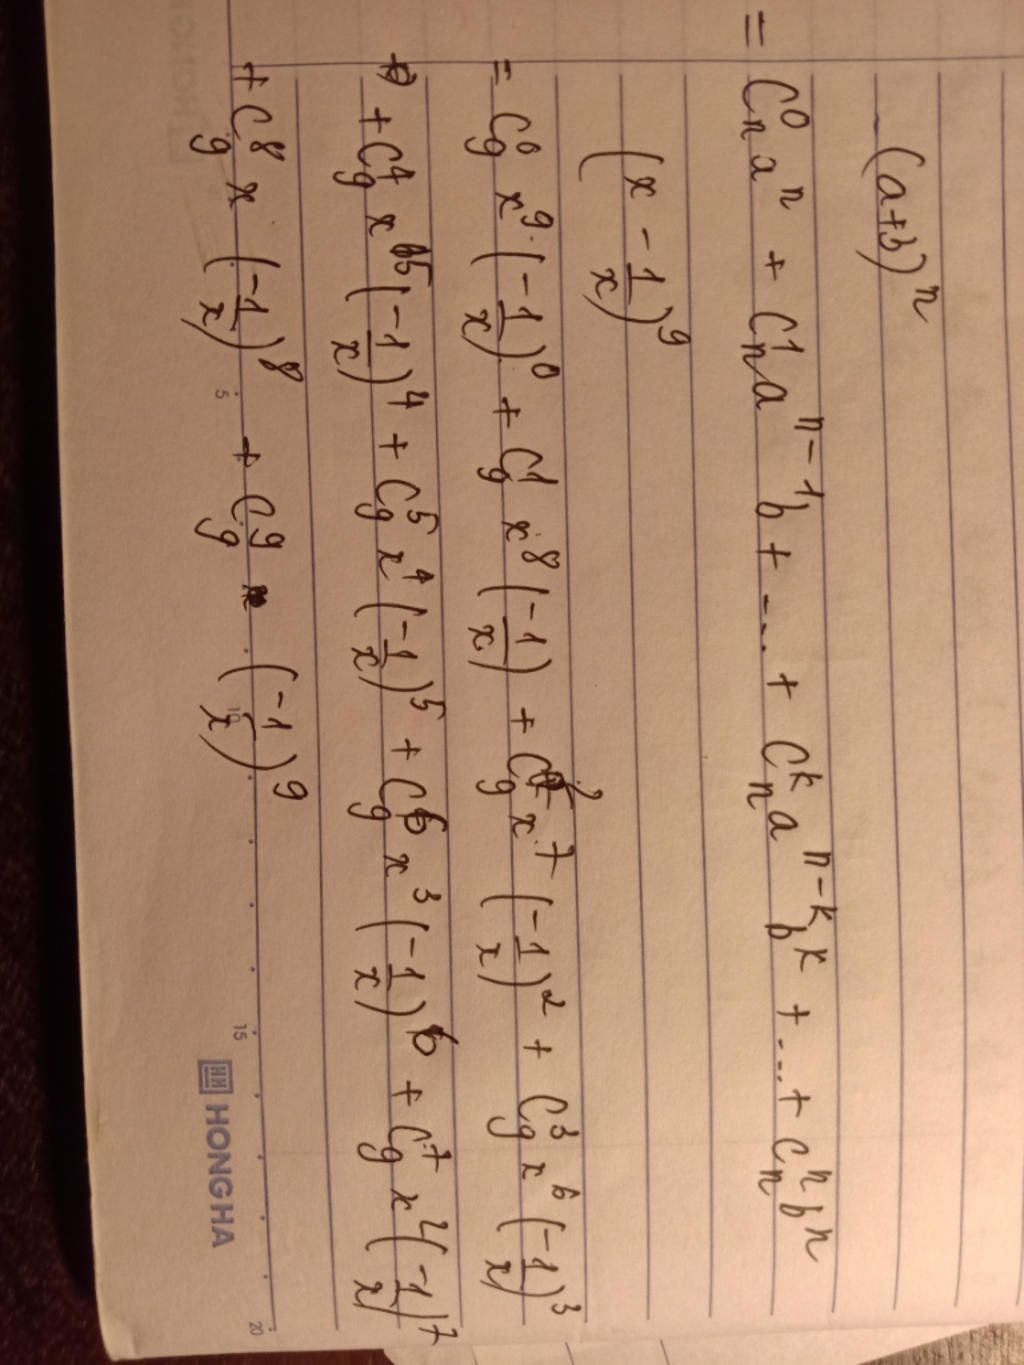 (a+b)^n
= C_n^0 a^n + C_n^1 a^{n-1} b + ... + C_n^k a^{n-k} b^k + ... + C_n^n b^n
(x - 1/x)^9
= C_9^0 x^9 · (-1/x)^0 + C_9^1 x^8 (-1/x) + C_9^2 x^7 (-1/x)^2 + C_9^3 x^6 (-1/x)^3
+ C_9^4 x^5 (-1/x)^4 + C_9^5 x^4 (-1/x)^5 + C_9^6 x^3 (-1/x)^6 + C_9^7 x^2 (-1/x)^7
+ C_9^8 x (-1/x)^8 + C_9^9 (-1/x)^9
5 10 15 20
HH HONG HA